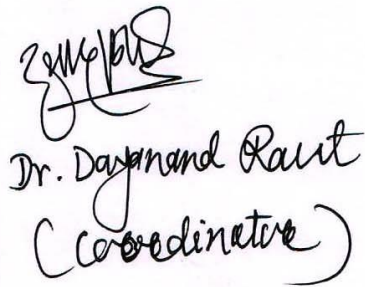 Dr. Dayanand Raut
(Coordinator)